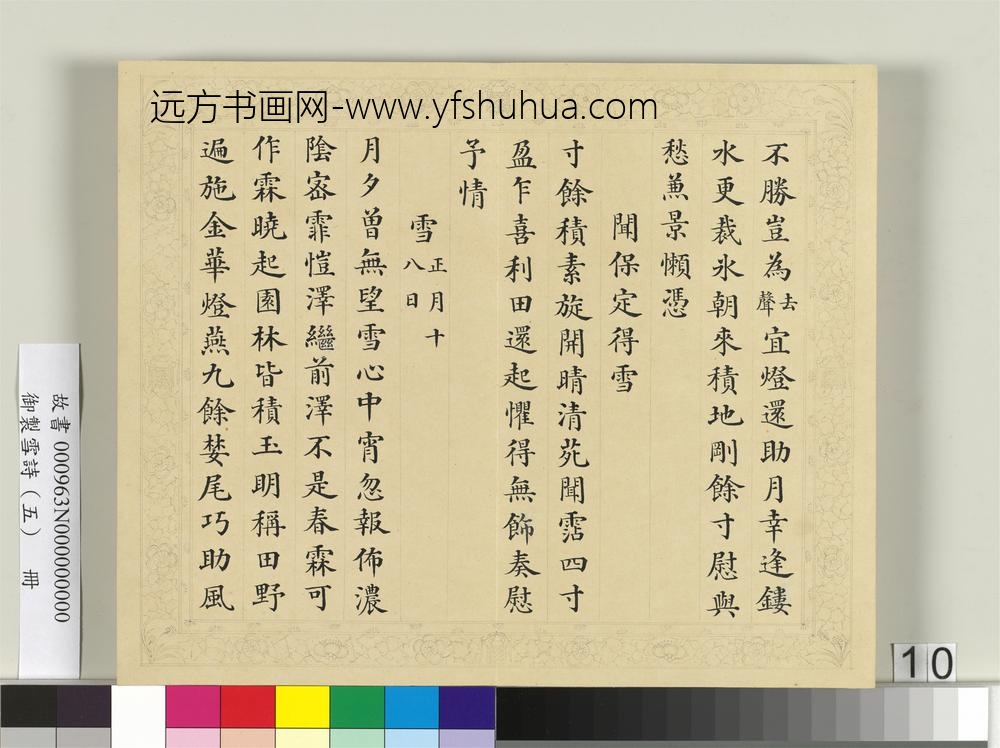 远方书画网-www.yfshuhua.com
不勝豈為去聲宜燈還助月幸逢鏤
水更裁氷朝來積地剛餘寸慰與
愁蒹景懶憑
聞保定得雪
寸餘積素旋開晴清苑聞霑四寸
盈乍喜利田還起懼得無飾奏慰
予情
雪正月十八日
月夕曽無望雪心中宵忽報佈濃
陰密霏愷澤繼前澤不是春霖可
作霖曉起園林皆積玉明稱田野
遍施金華燈燕九餘婪尾巧助風
故書 000963N000000000
御製雪詩（五） 冊
10